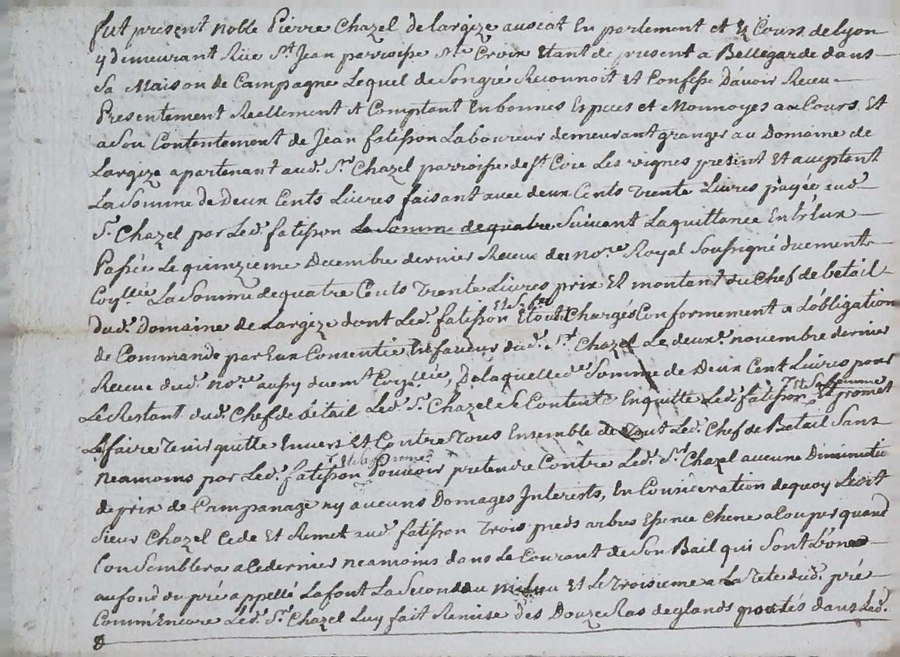 fut present noble Pierre Chazel de largize avocat En parlement et Es Cours de Lyon
y demeurant Rüe St. Jean parroisse Ste Croix Etant de present a Bellegarde dans
Sa Maison de Campagne Lequel de Son gre Reconnoit Et Confesse Davoir Receu
Presentement Reellement Et Comptant En bonnes Espices et Monnoyes au Cours Et
a Son Contentement de Jean fatisson Laboureur demeurant granger au Domaine de
Largize apartenant aud. Sr. Chazel parroisse de St. Les vignes present Et aceptent
La Somme de Deux Cents Livres faisant avec deux Cents Trente Livres payée aud.
Sr. Chazel par Led. fatisson La Somme de quatre Suivant La quittance Entr'Eux
Passée Le quinzieme Decembre dernier Receue du nore. Royal Soussigné duement
La Somme de quatre Cents Trente Livres prix Et montant du Chef de betail
dud. Domaine de Largize dont Led. fatisson Et Sa fe Chargés Conformement a Lobligation
de Commande par Eux Consentie En faveur dud. Sr. Chazel Le deuxe. novembre dernier
Receue dud. nore aussy duemt. De laquelle de. Somme de Deux Cent Livres pour
Le Restant dud. Chef de bétail Led. Sr. Chazel Se Contente En quitte Led. fatisson Et Sa femme Et promet
Le faire Tenir quitte Envers Et Contre Tous Ensemble de Tout Led. Chef de Betail Sans
neamoins par Led. fatisson Et lad. femme Pouvoir pretendre Contre Led. Sr. Chazel aucune Diminutio
de prix de Campanage ny aucuns Domages Interests, En Consideration de quoy Ledit
Sieur Chazel Cede Et Remet aud. fatisson Trois pieds arbres Epence Chene a Couper quand
bon Semblera a Ce dernier neamoins dans Le Courant de Son Bail qui Sont L'un
au fond du pré appellé Lafont La Second au milieu Et Le Troisieme a La Tete dud. pré
Comm'Encore Led. Sr. Chazel Luy fait Remise des Douze Ras de glands portés dans Led.